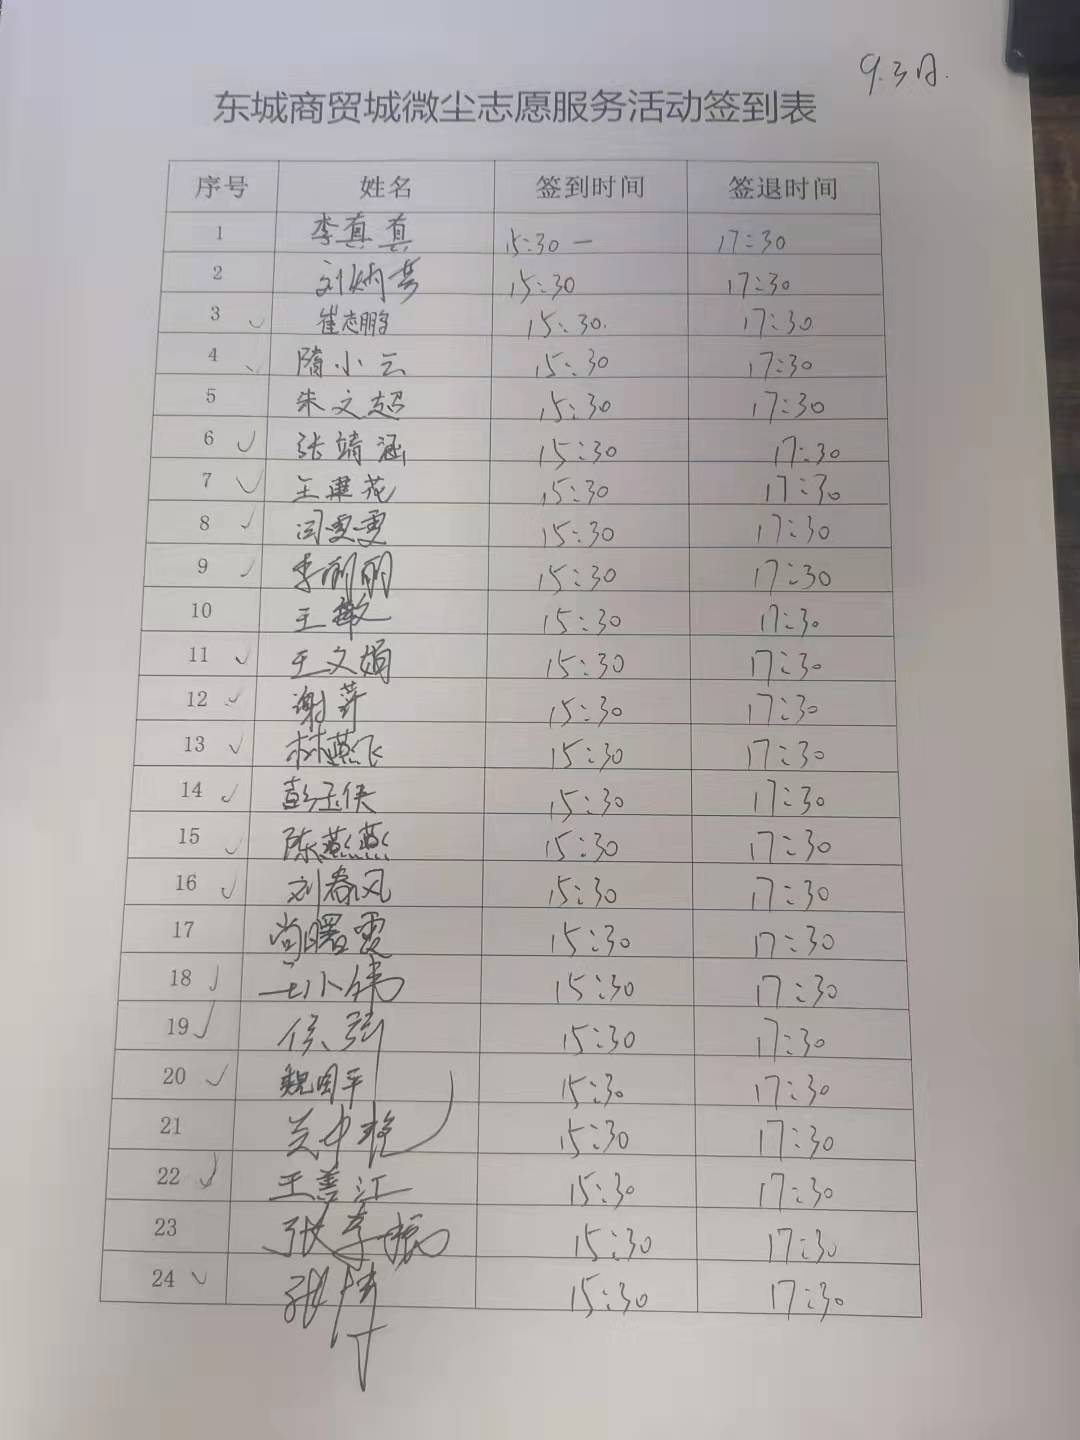 9.3日.
东城商贸城微尘志愿服务活动签到表
序号 姓名 签到时间 签退时间
1 李真真 15:30 — 17:30
2 刘炳 15:30 17:30
3 崔志鹏 15:30. 17:30
4 隋小云 15:30 17:30
5 朱文超 15:30 17:30
6 张靖涵 15:30 17:30
7 王 花 15:30 17:30
8 闫雯雯 15:30 17:30
9 李丽丽 15:30 17:30
10 王敏 15:30 17:30
11 王文娟 15:30 17:30
12 谢 15:30 17:30
13 林燕飞 15:30 17:30
14 彭玉侠 15:30 17:30
15 陈燕燕 15:30 17:30
16 刘春风 15:30 17:30
17 尚曙霞 15:30 17:30
18 王小伟 15:30 17:30
19 侯强 15:30 17:30
20 魏国平 15:30 17:30
21 15:30 17:30
22 王善江 15:30 17:30
23 张孝振 15:30 17:30
24 张 15:30 17:30